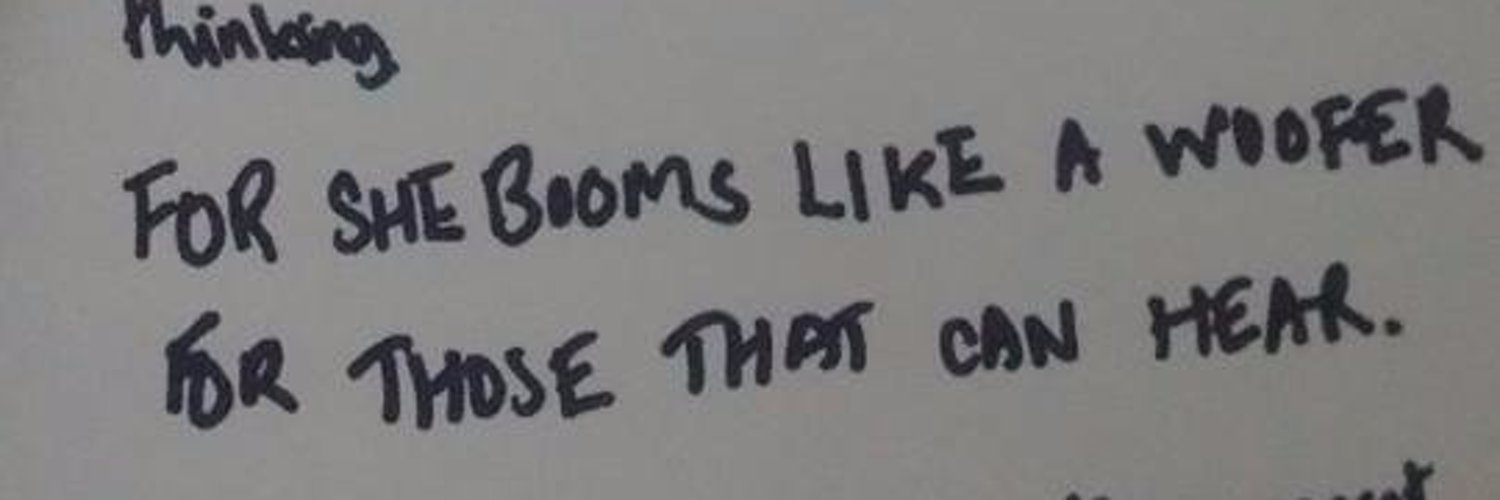 thinking
FOR SHE BOOMS LIKE A WOOFER
FOR THOSE THAT CAN HEAR.